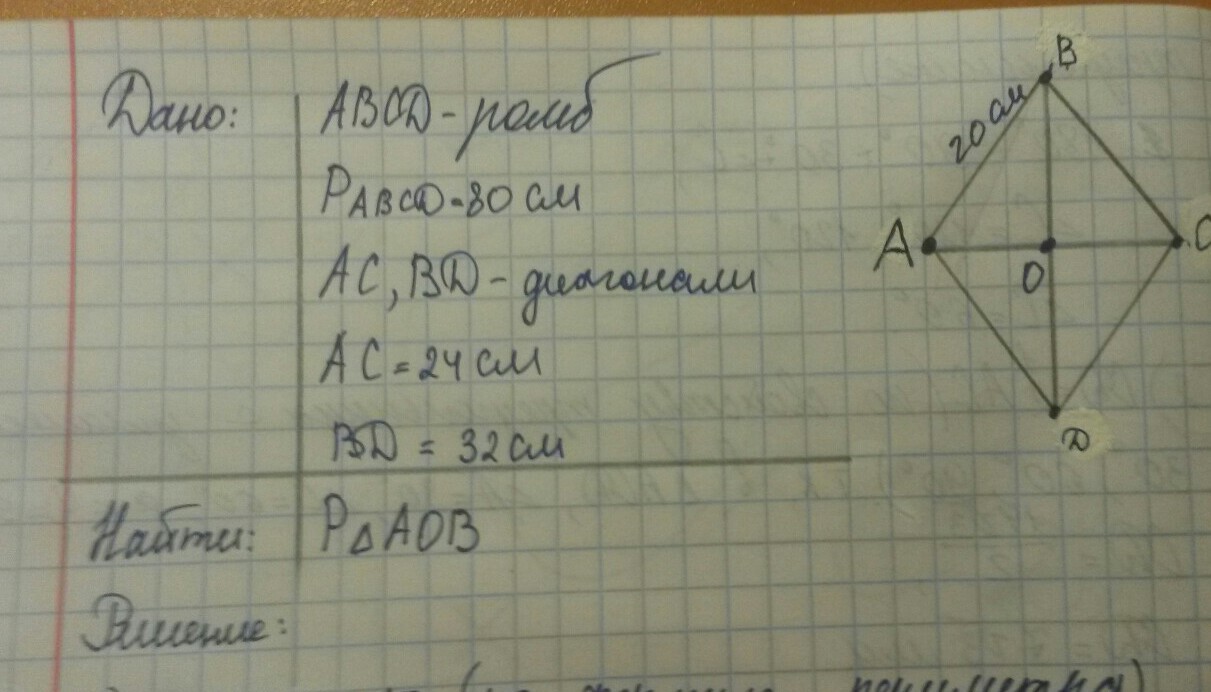 Дано: ABCD - ромб
PABCD = 80 см
AC, BD - диагонали
AC = 24 см
BD = 32 см
Найти: P△AOB
Решение:
B
20 см
A
O
C
D
периметра)